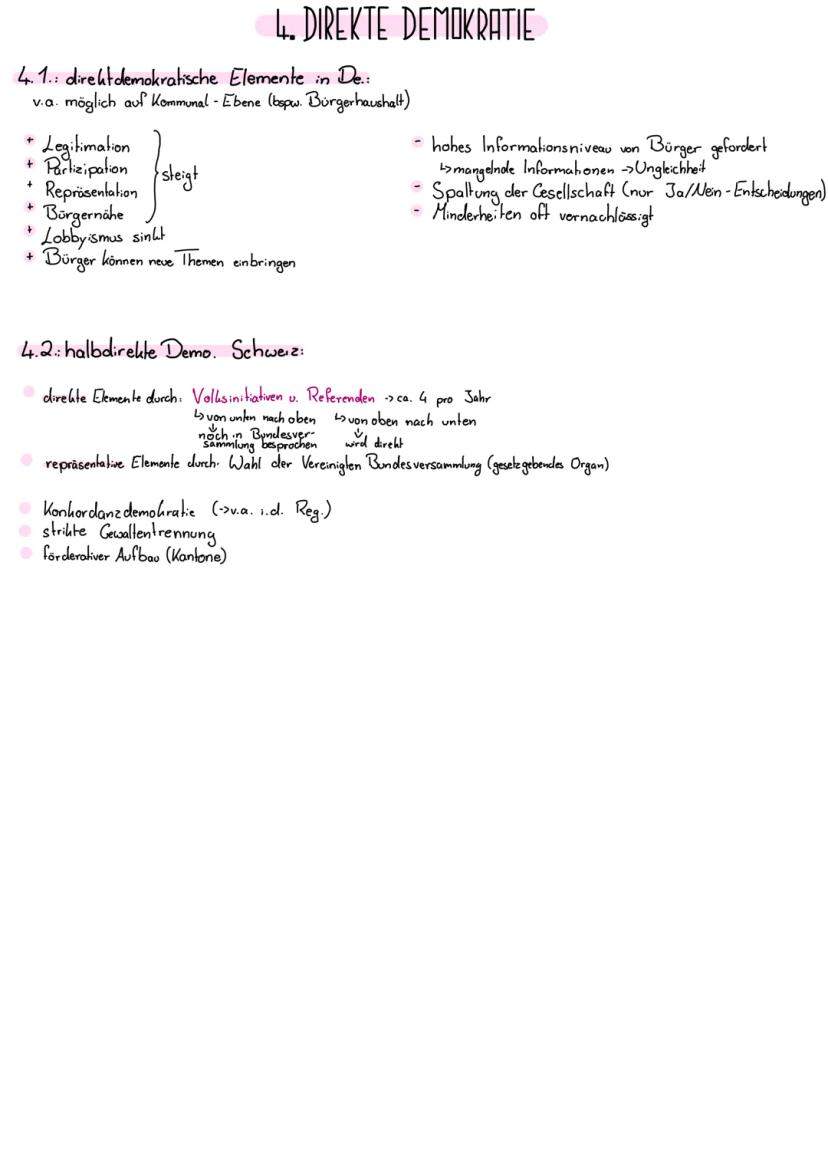 4. DIREKTE DEMOKRATIE
4.1.: direktdemokratische Elemente in De.:
v.a. möglich auf Kommunal-Ebene (bspw. Bürgerhaushalt)
+ Legitimation
+ Partizipation
+ Repräsentation
+ Bürgernähe
steigt
+ Lobbyismus sinkt
+ Bürger können neue Themen einbringen
- hohes Informationsniveau von Bürger gefordert
↳ mangelnde Informationen → Ungleichheit
- Spaltung der Gesellschaft (nur Ja/Nein-Entscheidungen)
- Minderheiten oft vernachlässigt
4.2.: halbdirekte Demo. Schweiz:
direkte Elemente durch: Volksinitiativen u. Referenden → ca. 4 pro Jahr
↳ von unten nach oben ↳ von oben nach unten
↓ ↓
noch in Bundesver- wird direkt
sammlung besprochen
repräsentative Elemente durch: Wahl der Vereinigten Bundesversammlung (gesetzgebendes Organ)
Konkordanzdemokratie (→ v.a. i.d. Reg.)
strikte Gewaltentrennung
förderativer Aufbau (Kantone)